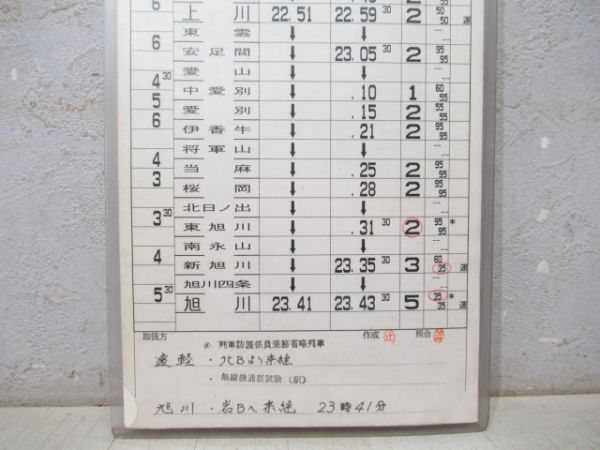 6
上川 22.51 22.59 30 2 50 50 運
東雲 ↓ ↓
6
安足間 ↓ 23.05 30 2 95 95
愛山 ↓ ↓
4 30
中愛別 ↓ .10 1 60 55
5
愛別 ↓ .15 2 55 55
6
伊香牛 ↓ .21 2 95 95
将軍山 ↓ ↓
4
当麻 ↓ .25 2 95 95
3
桜岡 ↓ .28 2 95 95
北日ノ出 ↓ ↓
3 30
東旭川 ↓ .31 30 2 95 95 *
南永山 ↓ ↓
4
新旭川 ↓ 23.35 30 3 60 35 運
旭川四条 ↓ ↓
5 30
旭川 23.41 23.43 30 5 35 35 * 運
取扱方 作成 照合
※. 列車防護係員乗務省略列車
遠軽・北Bより来継
・無線機通話試験（駅）
旭川・岩Bへ来継 23時41分